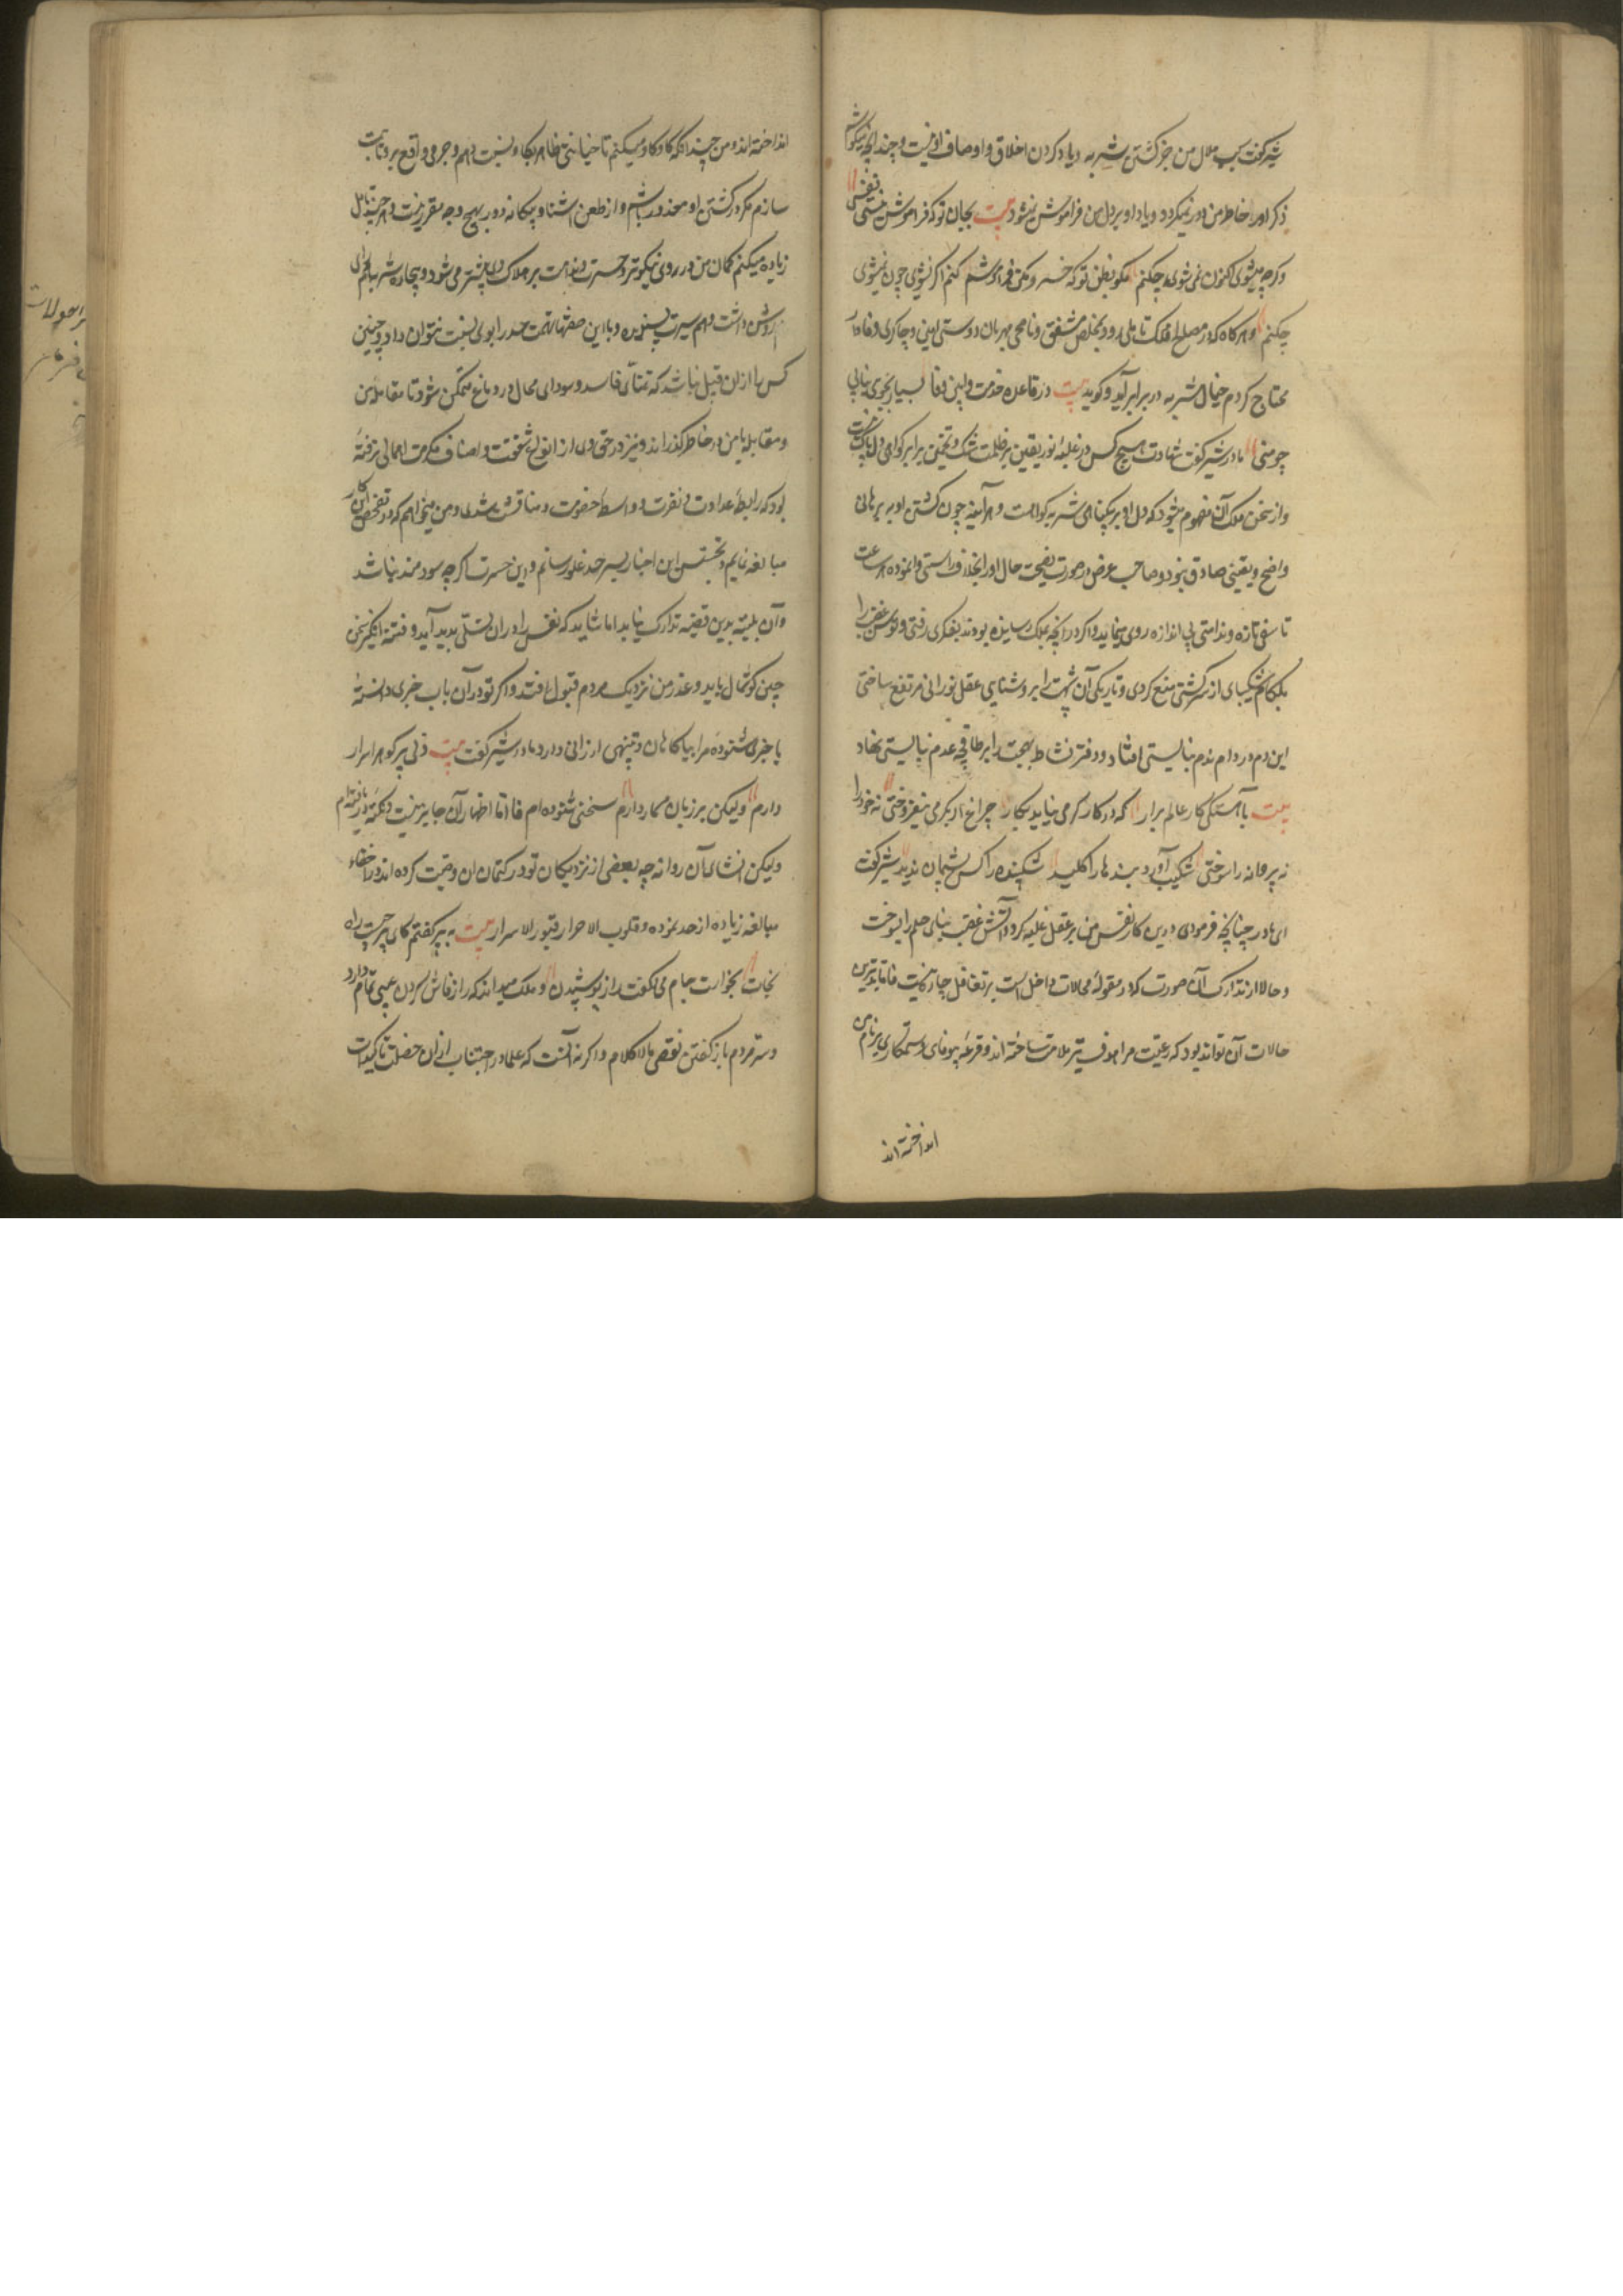 شیر گفت سبب ملال من جز کشتن شتربه و یاد کردن اخلاق و اوصاف او نیست و چندانچه میکوشم
ذکر او از خاطر من دور نمیگردد و یاد او بر دل من فراموش نمیشود بیت بجان تو که فراموش نیستی نفسی
وگرچه میشوی اکنون نمی شوی چکنم مگو بطنز تو که خسرو مکن فراموشم کنم اگر بشوی چون نمیشوی
چکنم و هرگاه که در مصالح ملک تاملی رود و بمخلص مشفق و ناصحی مهربان و دوستی امین و چاکری وفادار
محتاج گردم خیال شتربه در برابر آید و گوید بیت در قاعده خدمت و آیین وفا بسیار بجوی نیابی
چو منی مادر شیر گفت شهادت هیچ کس در غلبه نور یقین بر ظلمت شک و تخمین برابر گواهی دل پاک نیست
و از سخن ملک آن مفهوم میشود که دل او بر بیگناهی شتربه گواهست و هرآینه چون کشتن او به برهانی
واضح و یقینی صادق نبود و صاحب غرض در صورت نصیحت حال او را بخلاف راستی وانموده هر ساعت
تاسفی تازه و ندامتی بی اندازه روی مینماید و اگر در آنچه بملک رسانیده بودند بفکری رفتی و توسن غضب را
بلگام شکیبایی از سرکشی منع کردی و تاریکی آن شبهت را بروشنایی عقل نورانی مرتفع ساختی
این دم در دام ندم نبایستی افتاد و دفتر نشاط و بهجت را بر طاقچه عدم نبایستی نهاد
بیت بآهستگی کار عالم برار که در کار گرمی نیاید بکار چراغ ار بگرمی نیفروختی نه خود را
نه پروانه را سوختی شکیب آورد بندها را کلید شکیبنده را کس پشیمان ندید شیر گفت
ای مادر چنانچه فرمودی درین کار نفس من بر عقل غلبه کرد و آتش غضب بنای حلم را بسوخت
و حالا از تدارک آن صورت که در مقوله محالات داخل است بر تغافل چاره نیست فاما بدترین
حالات آن تواند بود که رعیت مرا هدف تیر ملامت ساخته اند و قرعه بیوفایی و ستمکاری بر نام من
انداخته اند
انداخته اند و من چندانکه کاوکاو میکنم تا خیانتی ظاهر بگاو نسبت دهم و جرمی واقع برو ثابت
سازم مگر در کشتن او معذور باشم و از طعن آشنا و بیگانه دور بهیچ وجه مقرر نیست و هر چند تامل
زیاده میکنم گمان من در وی نیکوتر و حسرت و ندامت بر هلاک وی بیشتر می شود و بیچاره شتربه هم رای
روشن داشت و هم سیرت پسندیده و با این صفتها تهمت حسد را بوی نسبت نتوان داد و چنین
کس را از آن قبیل نباشد که تمنای فاسد و سودای محال در دماغ متمکن شود تا مقابله من
و مقابله با من در خاطر گذراند و نیز در حق وی از انواع شفقت و اصناف مکرمت اهمالی نرفته
بود که رابطه عداوت و نفرت و واسطه خصومت و مناقشت شدی و من میخواهم که در تفحص این کار
مبالغه نمایم و تجسس این اخبار بسرحد غلو رسانم و این حسرت اگرچه سودمند نباشد
و آن بلیه بدین قضیه تدارک نیابد اما شاید که نفس را در آن تسلی پدید آید و فتنه انگیز سخن
چین گوشمال یابد و عذر من نزدیک مردم قبول افتد و اگر تو در آن باب خبری دانسته
یا خبری شنوده مرا بیاگاهان و تنبیهی ارزانی دار مادر شیر گفت بیت دلی پر گوهر اسرار
دارم ولیکن بر زبان مسمار دارم سخنی شنوده ام فاما اظهار آن جایز نیست و نکته دریافته ام
ولیکن افشای آن روا نه چه بعضی از نزدیکان تو در کتمان آن وصیت کرده اند و در اخفاء
مبالغه زیاده از حد نموده و قلوب الاحرار قبور الاسرار بیت به پیر گفتم کای پیر چیست راه
نجات بخواست جام می و گفت راز پوشیدن و ملک میداند که راز فاش کردن عیبی تمام دارد
و سر مردم باز گفتن نقصی مالاکلام و اگر نه آنست که علما در اجتناب از آن خصلت تاکیدات